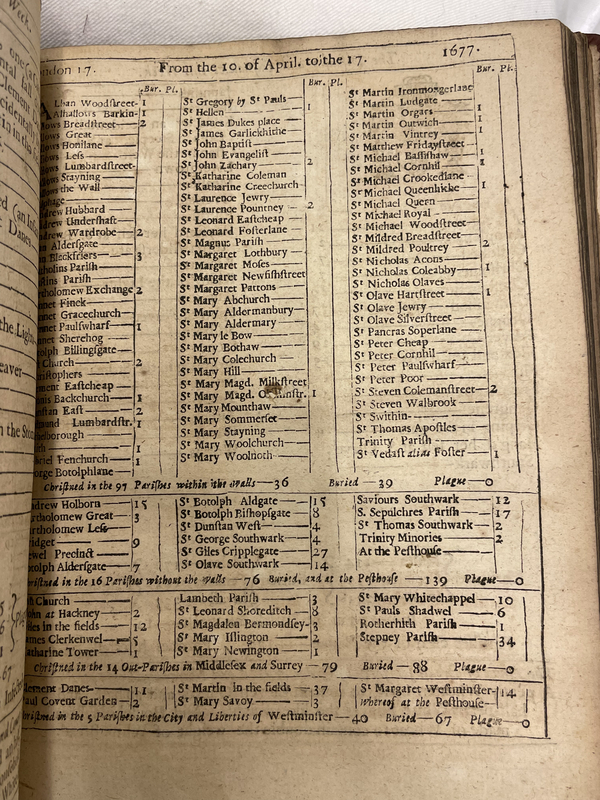 ondon 17. From the 10. of April. to the 17. 1677.
Bur. Pl.
Lban Woodstreet- 1
Alhallows Barkin- 1
lows Breadstreet- 2
lows Great
lows Honilane
lows Less
lows Lumbardstreet-
lows Stayning
lows the Wall
drew Hubbard
drew Undershaft
drew Wardrobe 2
Aldersgate
Blackfriers 3
holins Parish
stins Parish
tholomew Exchange 2
nnet Finck
nnet Gracechurch
nnet Paulswharf 1
nnet Sherehog
tolph Billingsgate
Church 2
ristophers
ment Eastcheap
nis Backchurch 1
nstan East 2
mund Lumbardstr. 1
helborough
1
briel Fenchurch 1
orge Botolphlane
Bur. Pl.
St Gregory by St Pauls
St Hellen 1
St James Dukes place
St James Garlickhithe
St John Baptist
St John Evangelist
St John Zachary 2
St Katharine Coleman
St Katharine Creechurch
St Laurence Jewry
St Laurence Pountney 2
St Leonard Eastcheap
St Leonard Fosterlane
St Magnus Parish
St Margaret Lothbury
St Margaret Moses
St Margaret Newfishstreet
St Margaret Pattons
St Mary Abchurch
St Mary Aldermanbury
St Mary Aldermary
St Mary le Bow
St Mary Bothaw
St Mary Colechurch
St Mary Hill
St Mary Magd. Milkstreet
St Mary Magd. 1
St Mary Mounthaw
St Mary Somerset
St Mary Stayning
St Mary Woolchurch
St Mary Woolnoth
Bur. Pl.
St Martin Ironmongerlane
St Martin Ludgate
St Martin Orgars 1
St Martin Outwich 1
St Martin Vintrey 1
St Matthew Fridaystreet
St Michael Bassishaw 1
St Michael Cornhil 1
St Michael Crookedlane
St Michael Queenhithe 1
St Michael Quern
St Michael Royal
St Michael Woodstreet
St Mildred Breadstreet
St Mildred Poultrey 2
St Nicholas Acons
St Nicholas Coleabby 1
St Nicholas Olaves
St Olave Hartstreet 1
St Olave Jewry
St Olave Silverstreet
St Pancras Soperlane
St Peter Cheap
St Peter Cornhil
St Peter Paulswharf
St Peter Poor
St Steven Colemanstreet 2
St Steven Walbrook
St Swithin
St Thomas Apostles
Trinity Parish
St Vedast alias Foster 1
Christned in the 97 Parishes within the walls—36 Buried—39 Plague—0
drew Holborn 15
artholomew Great 3
artholomew Less
ridget 9
ewel Precinct
otolph Aldersgate 7
St Botolph Aldgate 15
St Botolph Bishopsgate 8
St Dunstan West 4
St George Southwark 4
St Giles Cripplegate 27
St Olave Southwark 14
Saviours Southwark 12
S. Sepulchres Parish 17
St Thomas Southwark 2
Trinity Minories 2
At the Pesthouse
hristned in the 16 Parishes without the Walls—76 Buried, and at the Pesthouse—139 Plague—0
Church
ohn at Hackney 2
iles in the fields 12
ames Clerkenwel 5
atharine Tower 1
Lambeth Parish 3
St Leonard Shoreditch 8
St Magdalen Bermondsey 3
St Mary Islington 2
St Mary Newington 1
St Mary Whitechappel 10
St Pauls Shadwel 6
Rotherhith Parish 1
Stepney Parish 34
Christned in the 14 Out-Parishes in Middlesex and Surrey—79 Buried—88 Plague—0
lement Danes 11
aul Covent Garden 2
St Martin in the fields 37
St Mary Savoy 3
St Margaret Westminster 14
Whereof at the Pesthouse
hristned in the 5 Parishes in the City and Liberties of Westminster—40 Buried—67 Plague—0